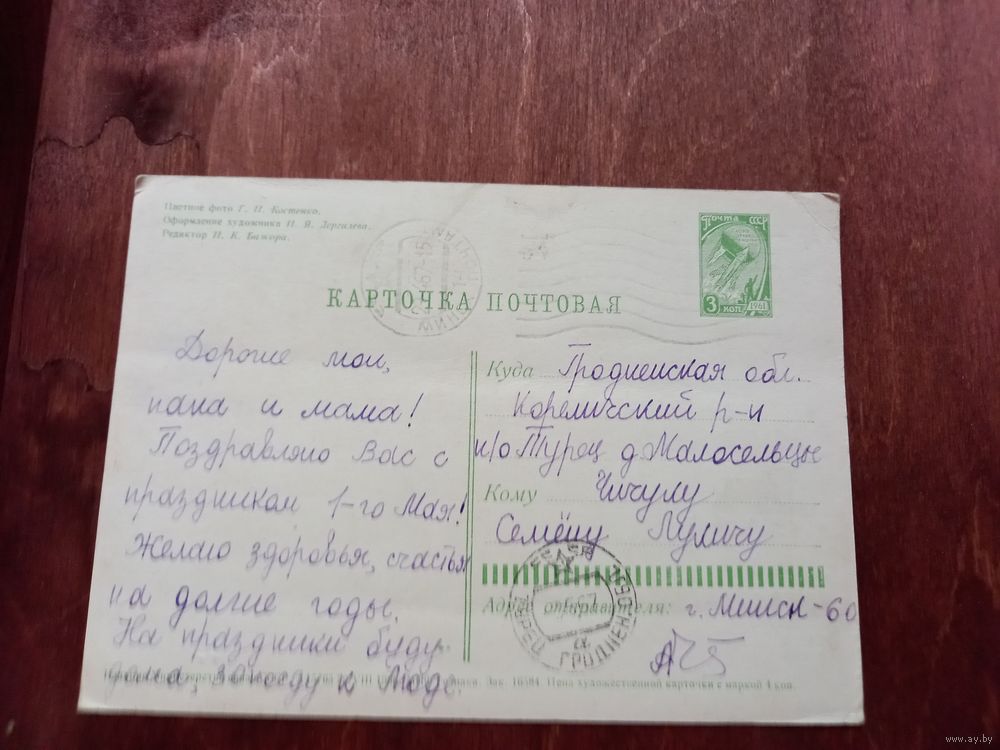 Цветное фото Г. П. Костенко.
Оформление художника П. Я. Дергилева.
Редактор П. К. Бажора.
Почта СССР
3 коп
1961
КАРТОЧКА ПОЧТОВАЯ
Дорогие мои,
папа и мама!
Поздравляю Вас с
праздником 1-го Мая!
Желаю здоровья, счастья
на долгие годы.
На праздники буду
дома, заходу к Моде.
Куда Гродненская обл.
Кореличский р-н
п/о Турец д. Малосельцы
Кому Чичулу
Семёну Лумичу
Адрес отправителя: г. Минск-60
ТУРЕЦ ГРОДНЕНСКОЙ
Зак. 16584. Цена художественной карточки с маркой 4 коп.
www.ay.by